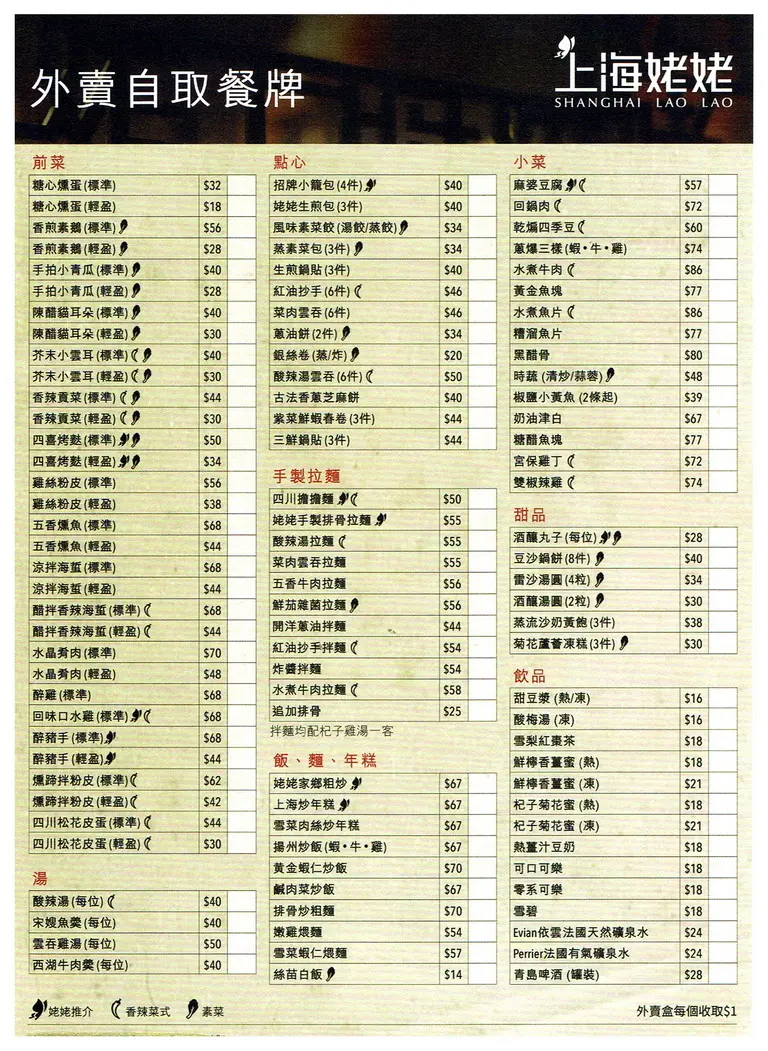 外賣自取餐牌
上海姥姥
SHANGHAI LAO LAO
前菜
糖心燻蛋(標準) $32
糖心燻蛋(輕盈) $18
香煎素鵝(標準) $56
香煎素鵝(輕盈) $28
手拍小青瓜(標準) $40
手拍小青瓜(輕盈) $28
陳醋貓耳朵(標準) $40
陳醋貓耳朵(輕盈) $30
芥末小雲耳(標準) $40
芥末小雲耳(輕盈) $30
香辣貢菜(標準) $44
香辣貢菜(輕盈) $30
四喜烤麩(標準) $50
四喜烤麩(輕盈) $34
雞絲粉皮(標準) $56
雞絲粉皮(輕盈) $38
五香燻魚(標準) $68
五香燻魚(輕盈) $44
涼拌海蜇(標準) $68
涼拌海蜇(輕盈) $44
醋拌香辣海蜇(標準) $68
醋拌香辣海蜇(輕盈) $44
水晶肴肉(標準) $70
水晶肴肉(輕盈) $48
醉雞(標準) $68
回味口水雞(標準) $68
醉豬手(標準) $68
醉豬手(輕盈) $44
燻蹄拌粉皮(標準) $62
燻蹄拌粉皮(輕盈) $42
四川松花皮蛋(標準) $44
四川松花皮蛋(輕盈) $30
湯
酸辣湯(每位) $40
宋嫂魚羹(每位) $40
雲吞雞湯(每位) $50
西湖牛肉羹(每位) $40
點心
招牌小籠包(4件) $40
姥姥生煎包(3件) $40
風味素菜餃(湯餃/蒸餃) $34
蒸素菜包(3件) $34
生煎鍋貼(3件) $40
紅油抄手(6件) $46
菜肉雲吞(6件) $46
蔥油餅(2件) $34
銀絲卷(蒸/炸) $20
酸辣湯雲吞(6件) $50
古法香蔥芝麻餅 $40
紫菜鮮蝦春卷(3件) $44
三鮮鍋貼(3件) $44
手製拉麵
四川擔擔麵 $50
姥姥手製排骨拉麵 $55
酸辣湯拉麵 $55
菜肉雲吞拉麵 $55
五香牛肉拉麵 $56
鮮茄雜菌拉麵 $56
開洋蔥油拌麵 $44
紅油抄手拌麵 $54
炸醬拌麵 $54
水煮牛肉拉麵 $58
追加排骨 $25
拌麵均配杞子雞湯一客
飯、麵、年糕
姥姥家鄉粗炒 $67
上海炒年糕 $67
雪菜肉絲炒年糕 $67
揚州炒飯(蝦•牛•雞) $67
黃金蝦仁炒飯 $70
鹹肉菜炒飯 $67
排骨炒粗麵 $70
嫩雞煨麵 $54
雪菜蝦仁煨麵 $57
絲苗白飯 $14
小菜
麻婆豆腐 $57
回鍋肉 $72
乾煸四季豆 $60
蔥爆三樣(蝦•牛•雞) $74
水煮牛肉 $86
黃金魚塊 $77
水煮魚片 $86
糟溜魚片 $77
黑醋骨 $80
時蔬(清炒/蒜蓉) $48
椒鹽小黃魚(2條起) $39
奶油津白 $67
糖醋魚塊 $77
宮保雞丁 $72
雙椒辣雞 $74
甜品
酒釀丸子(每位) $28
豆沙鍋餅(8件) $40
雷沙湯圓(4粒) $34
酒釀湯圓(2粒) $30
蒸流沙奶黃飽(3件) $38
菊花蘆薈凍糕(3件) $30
飲品
甜豆漿(熱/凍) $16
酸梅湯(凍) $16
雪梨紅棗茶 $18
鮮檸香薑蜜(熱) $18
鮮檸香薑蜜(凍) $21
杞子菊花蜜(熱) $18
杞子菊花蜜(凍) $21
熱薑汁豆奶 $18
可口可樂 $18
零系可樂 $18
雪碧 $18
Evian依雲法國天然礦泉水 $24
Perrier法國有氣礦泉水 $24
青島啤酒(罐裝) $28
姥姥推介 香辣菜式 素菜
外賣盒每個收取$1